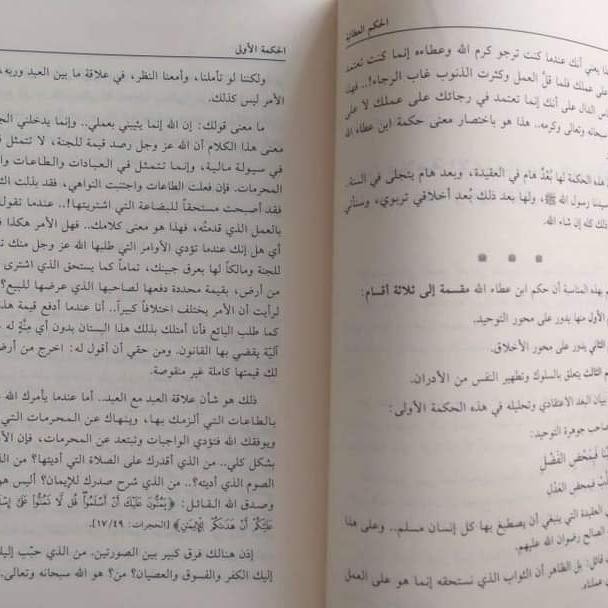 الحكم العطائية
يعني أنك عندما كنت ترجو كرم الله وعطاءه إنما كنت تعتمد
على عملك فلما قلَّ العمل وكثرت الذنوب غاب الرجاء!.. فهذا
الدال على أنك إنما تعتمد في رجائك على عملك لا على
سبحانه وتعالى وكرمه.. هذا هو باختصار معنى حكمة ابن عطاء الله
هذه الحكمة لها بُعْدٌ هام في العقيدة، وبعد هام يتجلى في السنة
سيدنا رسول الله ﷺ، ولها بعد ذلك بُعد أخلاقي تربوي، وسنأتي
ذلك كله إن شاء الله.
* * *
بهذه المناسبة أن حكم ابن عطاء الله مقسمة إلى ثلاثة أقسام:
الأول منها يدور على محور التوحيد.
الثاني يدور على محور الأخلاق.
الثالث يتعلق بالسلوك وتطهير النفس من الأدران.
بيان البعد الاعتقادي وتحليله في هذه الحكمة الأولى:
صاحب جوهرة التوحيد:
فبمحض الفضل
فبمحض العدل
العقيدة التي ينبغي أن يصطبغ بها كل إنسان مسلم.. وعلى هذا
الصالح رضوان الله عليهم.
قائل: بل الظاهر أن الثواب الذي نستحقه إنما هو على العمل
الحكمة الأولى
ولكننا لو تأملنا، وأمعنا النظر، في علاقة ما بين العبد وربه،
الأمر ليس كذلك.
ما معنى قولك: إن الله إنما يثيبني بعملي.. وإنما يدخلني
معنى هذا الكلام أن الله عز وجل رصد قيمة للجنة، لا تتمثل
في سيولة مالية، وإنما تتمثل في العبادات والطاعات
المحرمات. فإن فعلت الطاعات واجتنبت النواهي، فقد بذلت
فقد أصبحت مستحقاً للبضاعة التي اشتريتها!.. عندما تقول
بالعمل الذي قدمتُه، فهذا هو معنى كلامك. فهل الأمر هكذا
أي هل إنك عندما تؤدي الأوامر التي طلبها الله عز وجل منك
للجنة ومالكاً لها بعرق جبينك، تماماً كما يستحق الذي اشترى
من أرض، بقيمة محددة دفعها لصاحبها الذي عرضها للبيع؟
لرأيت أن الأمر يختلف اختلافاً كبيراً.. أنا عندما أدفع قيمة
كما طلب البائع فأنا أمتلك بذلك هذا البستان بدون أي مِنَّةٍ له
آليّة يقضي بها القانون. ومن حقي أن أقول له: اخرج من
لك قيمتها كاملة غير منقوصة.
ذلك هو شأن علاقة العبد مع العبد.. أما عندما يأمرك الله
بالطاعات التي ألزمك بها، وينهاك عن المحرمات التي
ويوفقك الله فتؤدي الواجبات وتبتعد عن المحرمات، فإن
بشكل كلي.. من الذي أقدرك على الصلاة التي أديتها؟ من
الصوم الذي أديته؟.. من الذي شرح صدرك للإيمان؟ أليس هو
وصدق الله القائل: ﴿يَمُنُّونَ عَلَيْكَ أَنْ أَسْلَمُوا قُل لَّا تَمُنُّوا عَلَيَّ
عَلَيْكُمْ أَنْ هَدَاكُمْ لِلْإِيمَانِ﴾ [الحجرات: ١٧/٤٩].
إذن هنالك فرق كبير بين الصورتين. من الذي حبّب
إليك الكفر والفسوق والعصيان؟ من؟ هو الله سبحانه وتعالى.